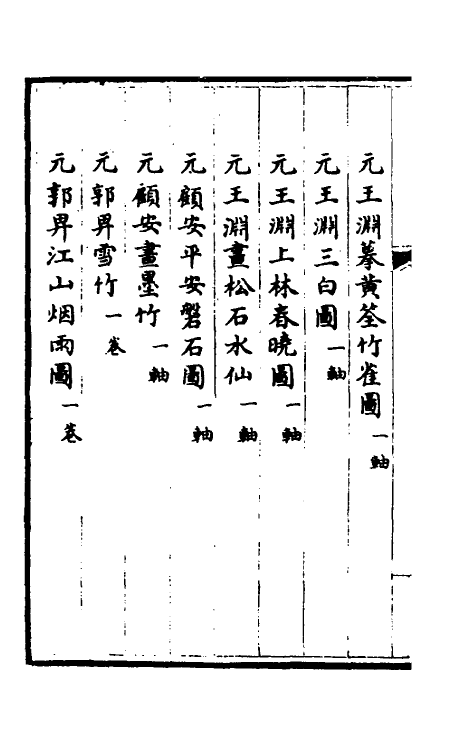 元王淵摹黃筌竹雀圖一軸
元王淵三白圖一軸
元王淵上林春曉圖一軸
元王淵畫松石水仙一軸
元顧安平安磐石圖一軸
元顧安畫墨竹一軸
元郭畀雪竹一卷
元郭畀江山烟雨圖一卷